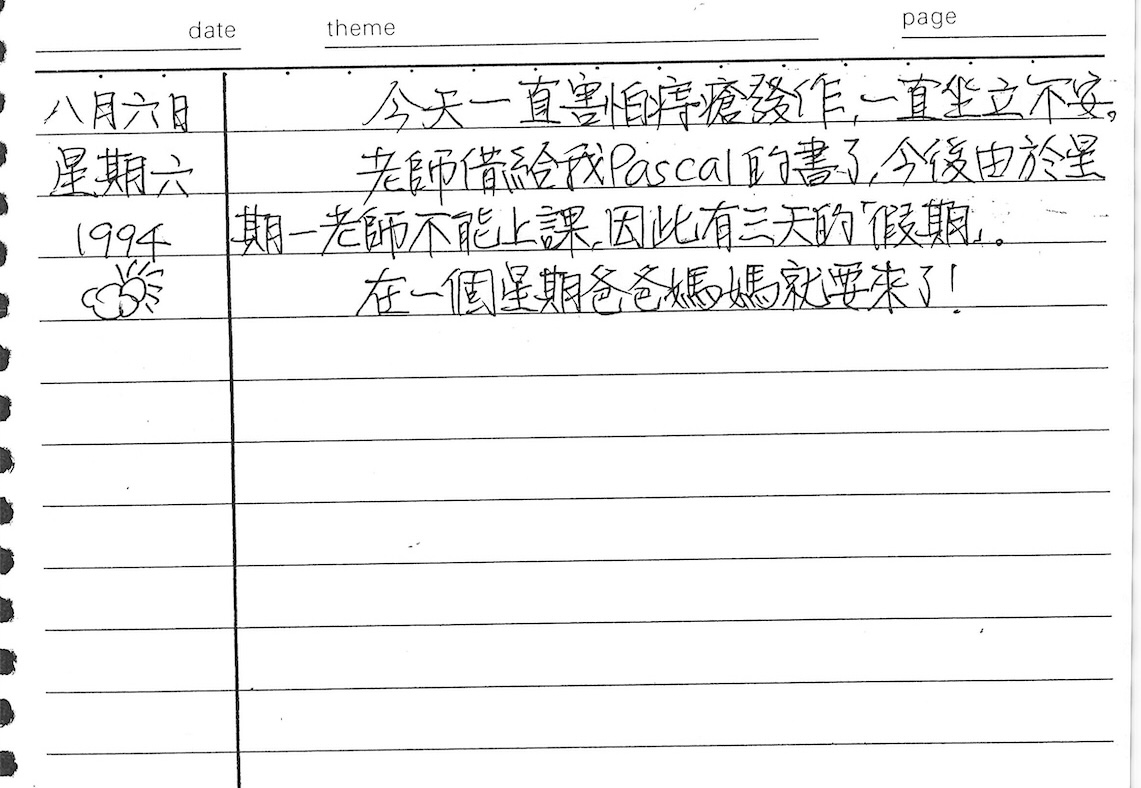 date theme page
八月六日
星期六
1994
今天一直害怕痔瘡發作,一直坐立不安。
老師借給我Pascal的書了,今後由於星
期一老師不能上課,因此有三天的「假期」。
在一個星期爸爸媽媽就要來了!